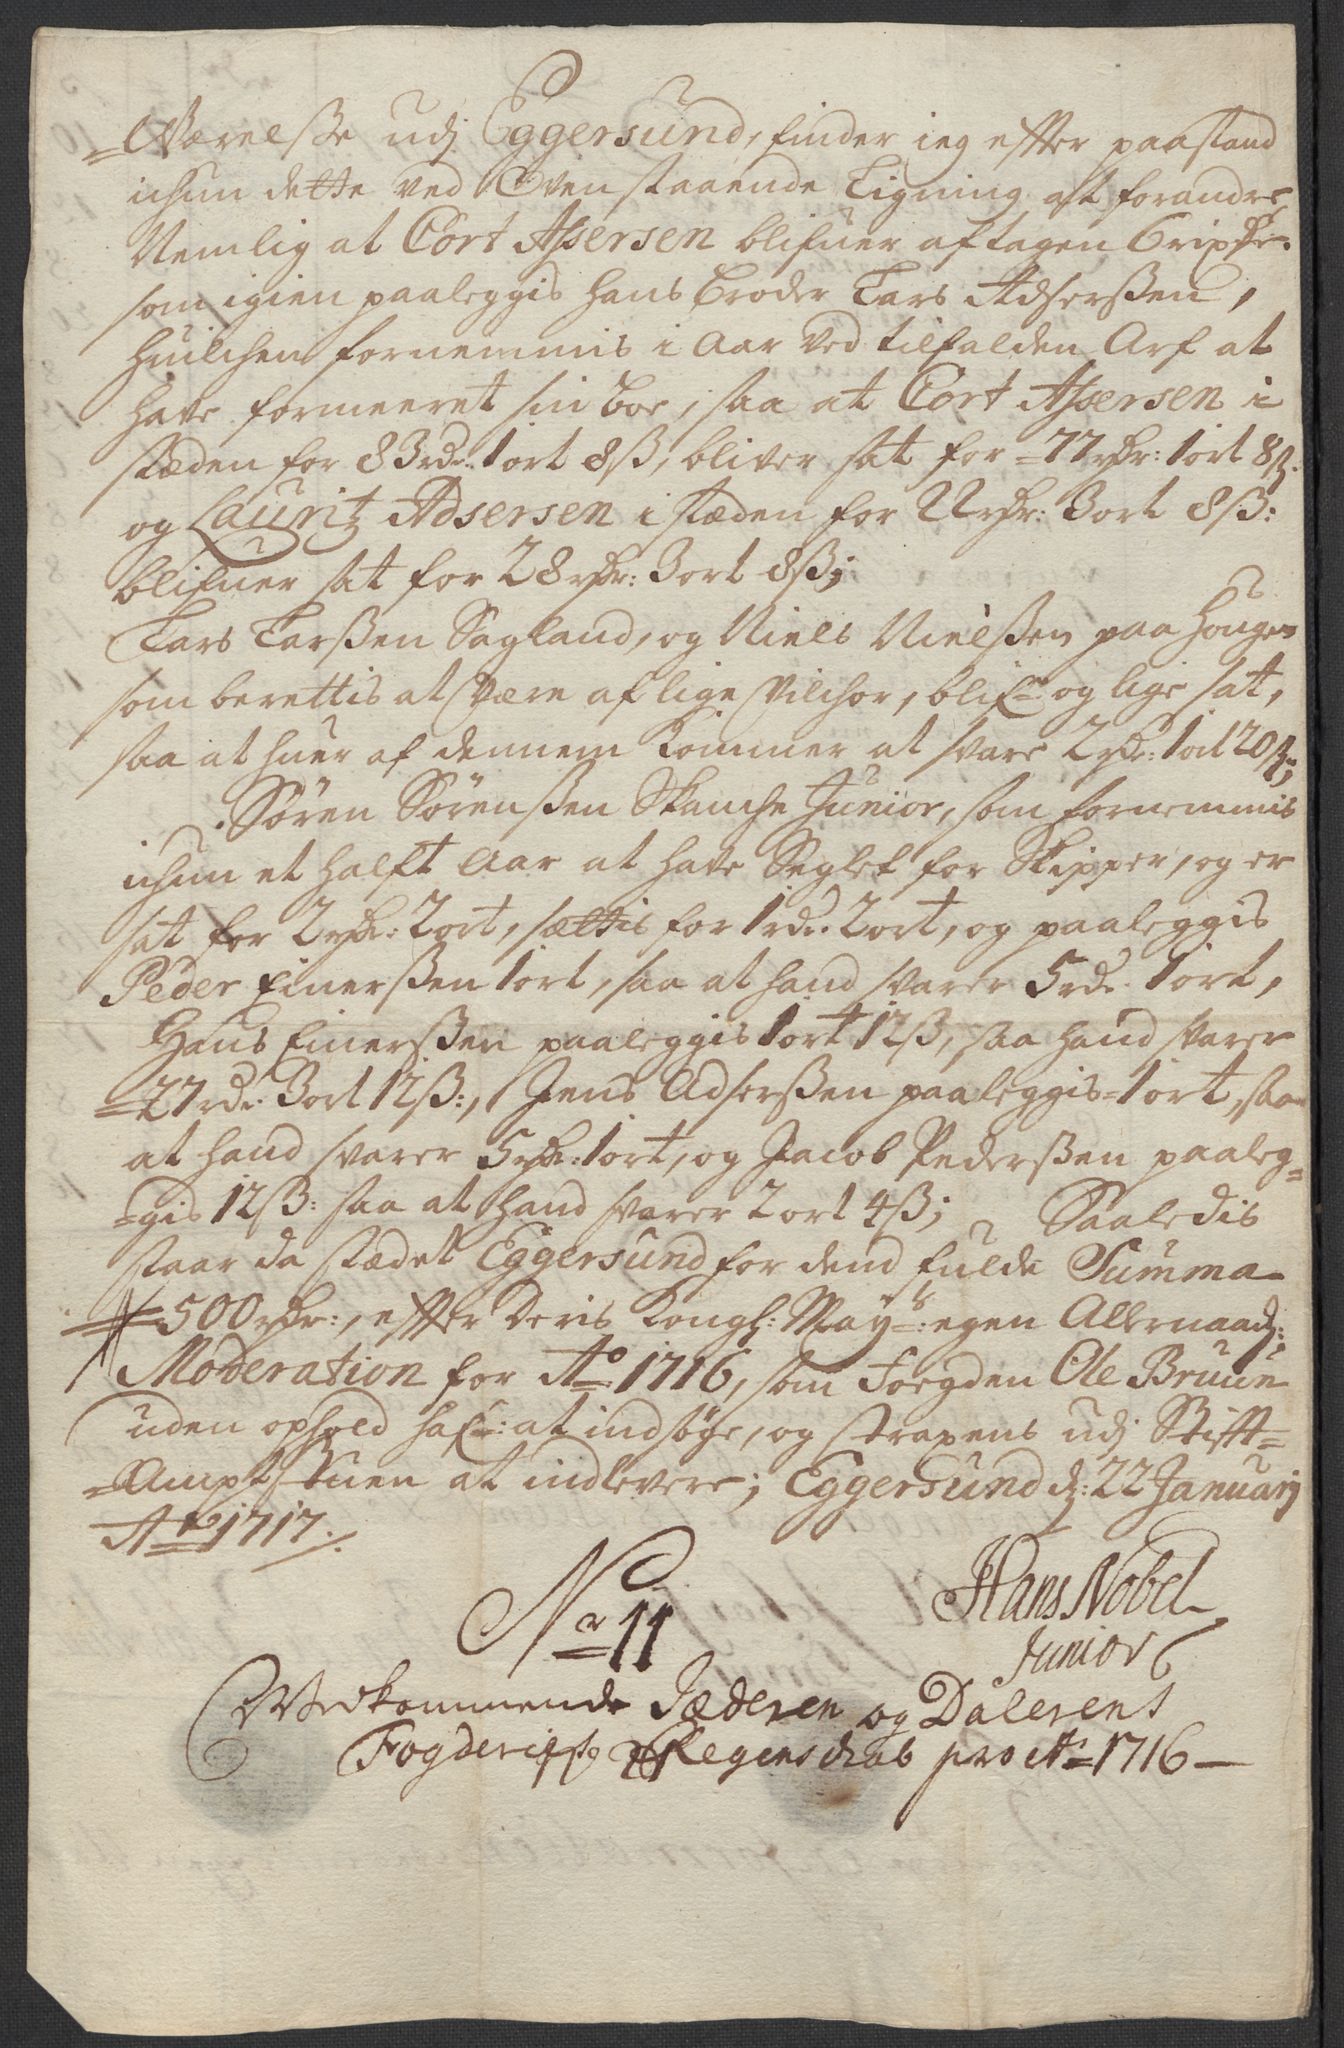 =Værelse udj Eggersund, finder ieg effter paastand
ichun dette ved Ovenstaaende Ligning at forandre,
Nemlig at Cort Assersen blifuer aftagen 6 ripdr:
som igien paaleggis hans broder Lars Adserßen,
huilchen fornemmis i Aar ved tilfalden Arf at
have formeeret sin boe, saa at Cort Assersen i
stæden for 83 rdr. 1 ort 8 ß, bliver sat for =77 rdr: 1 ort 8 ß.
og Lauritz Adsersen i stæden for 22 rdr: 3 ort 8 ß:
blifuer sat for 28 rdr: 3 ort 8 ß;
Lars Larßen Sagland, og Niels Nielßen paa Hougen
som berettis at være af lige Vilchor, blifr og lige sat,
saa at huer af dennem kommer at svare 2 rdr: 1 ort 20 ß;
Søren Sørenßen Skanche Junior, som fornemmis
ichun et halft Aar at have Seglet for Skipper, og er
sat for 2 rdr: 2 ort, sættis for 1 rdr. 2 ort, og paaleggis
Peder Einerßen 1 ort, saa at hand svarer 5 rdr. 1 ort,
Hans Einerßen paaleggis 1 ort 12 ß, saa hand svarer
=27 rdr. 3 ort 12 ß:, Jens Adserßen paaleggis =1 ort, saa
at hand svarer 5 rdr: 1 ort, og Jacob Pederßen paaleg=
=gis 12 ß: saa at hand svarer 2 ort 4 ß; Saaledis
staar da stædet Eggersund for dend fulde Summa
500 rdr:, effter Deris Kongl: Mayts: egen Allernaadg:
Moderation for Ao 1716, som Foegden Ole Bruun
uden ophold hafr: at indsøge, og strapens udj Stifft=
=Ampt Stuen at indlevere; Eggersund d: 22 Januarij
Ao 1717.
Hans Nobel
Junior
Nr 11
Vedkommende Jæderen og Dalerens
Fogderies Regenschab pro Ao 1716